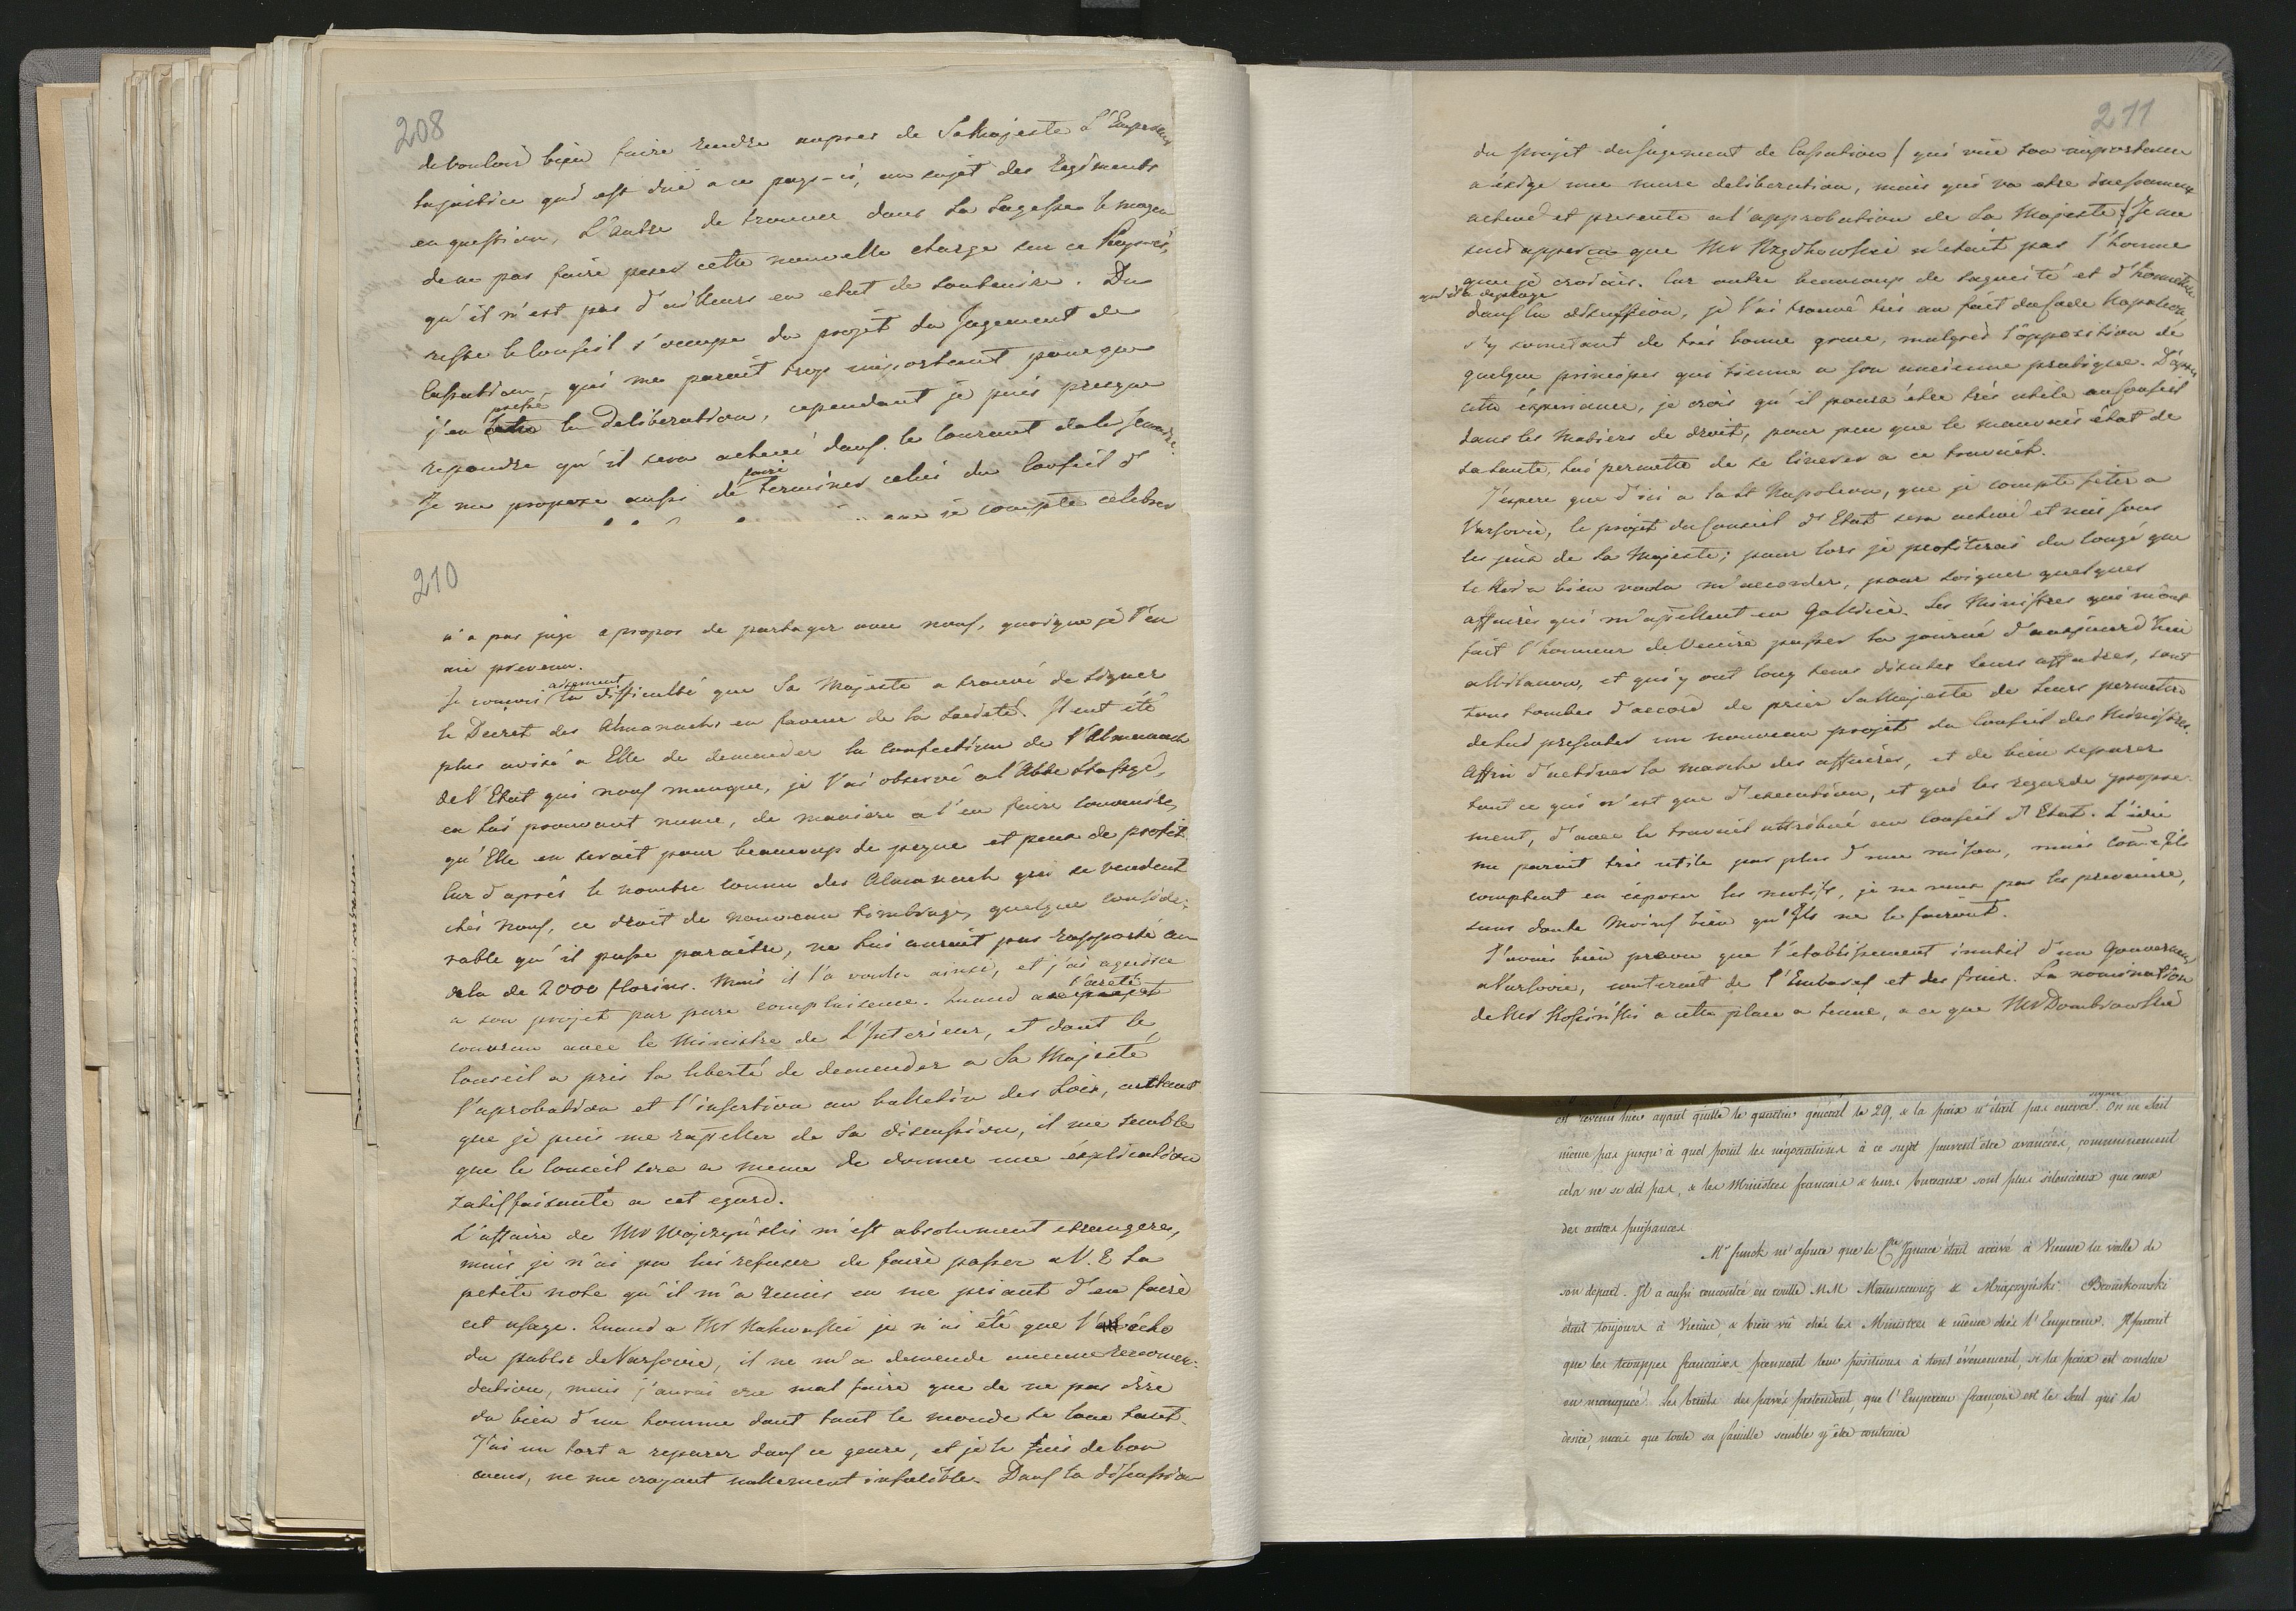 208
de vouloir bien faire rendre aupres de Sa Majesté L'Empereur
la justice qui est dûë a ce pays-ci, au sujet des Regiments
en question, L'autre de trouver dans Sa Sagesse le moyen
de ne pas faire peser cette nouvelle charge sur ce Pays-ci,
qu'il n'est pas d'ailleurs en etat de soutenire. Du
reste le Conseil s'occupe du projet du Jugement de
Cassation, qui me parait trop important pour que
j'en presse la Deliberation, cependant je puis presque
repondre qu'il sera achevé dans le courant de la Semaine.
Je me propose aussi de faire terminer celui du Conseil d'
que je compte celebrer
210
n'a pas jugé apropos de partager avec nous, quoique je l'en
aie prevenu.
Je conçois aisement la difficulté que Sa Majesté a trouvé de signer
le Decret des Almanachs en faveur de la Societé. Il eut été
plus avisé a Elle de demander la confection de l'Almanach
de l'Etat qui nous manque, je l'ai observé a l'Abbé Staszyc,
en lui prouvant meme, de maniere a l'en faire convenire,
qu'Elle en serait pour beaucoup de peyne et peux de profit.
Car d'après le nombre connu des Almanach qui se vendent
chés nous, ce droit de nouveau timbrage, quelque conside-
rable qu'il puisse paraitre, ne lui aurait pas rapporté au
dela de 2000 florins. Mais il l'a voulu ainsi, et j'ai aquiescé
a son projet par pure complaisence. Quand a l'areté
convenu avec le Ministre de L'Interieur, et dont le
Conseil a pris la liberté de demender a Sa Majesté
l'aprobation et l'insertion au bulletin des Loix, autant
que je puis me rapeller de sa discussion, il me semble
que le Conseil sera a meme de donner une éxplication
satisffaisante a cet egard.
L'affaire de Mr Wojczyński m'est absolument etrangere,
mais je n'ai pu lui refuser de faire passer a V. E sa
petite note qu'il m'a remis en me priant d'en faire
cet usage. Quand a Mr Kakowski je n'ai été que l'écho
du public de Varsovie, il ne m'a demendé aucune recomen-
dation, mais j'aurai cru mal faire que de ne pas dire
du bien d'un homme dont tout le monde se loue tant.
J'ai un tort a reparer dans ce genre, et je le fais de bon
coeur, ne me croyant nullement infaillible. Dans la discussion
211
du projet du Jugement de Cassation (qui vûe son importence
a éxigé une mure deliberation, mais qui va etre incessament
achevé et presenté a l'approbation de Sa Majesté) Je me
suis apperçu que Mr Rzędkowski n'était pas l'homme
que je croiais. Car outre beaucoup de sagacité et d'honneteté
qu'il a deployé
dans la discussion, je l'ai trouvé très au fait du Code Napoleon,
s'y sometant de très bonne grace, malgrès l'opposition de
quelque principes qui tienne a son ancienne pratique. D'après
cette éxperiance, je crois qu'il poura être très utile au Conseil
dans les Matiers de droit, pour peu que le mauvais état de
sa santé, lui permette de se livrer a ce travail.
J'espere que d'ici a la St Napoleon, que je compte fêter a
Varsovie, le projet du Conseil d'Etat sera achevé et mis sous
les yeux de Sa Majesté; pour lors je profiterai du congé que
le Roi a bien voulu m'accorder, pour soigner quelques
affaires qui m'apellent en Gallicie. Les Ministres qui m'ont
fait l'honneur de Venire passer la journé d'aujourd'hui
a Wilanow, et qui y ont long tems discuter leurs affaires, sont
tous tombés d'accord de prier Sa Majesté de leurs permettre
de lui presenter un nouveau projet du Conseil des Ministres.
Affin d'activer la marche des affaires, et de bien separer
tout ce qui n'est que d'execution, et qui les regarde propre-
ment, d'avec le travail attribué au Conseil d'Etat. L'idée
me parait très utile par plus d'une raison, mais come Ils
comptent en éxposer les motifs, je ne veux pas les prevenire,
sans doute Moins bien qu'Ils ne le fairont.
J'avais bien prevu que l'etablissement inutil d'un Gouverneur
a Varsovie, couterait de l'Embaras et des frais. La nomination
de Mr Kosiński a cette place a tenue, a ce que Mr Dombrowski
est revenu hier ayant quitté le quartier général le 29, & la paix n'était pas encore signée. On ne sait
même pas jusqu'à quel point les négociations à ce sujet peuvent être avancées, communement
cela ne se dit pas, & les Ministres français & leurs bureaux sont plus silencieux que ceux
des autres puissances
Mr funck m'assure que le Cte Ignace était arrivé à Vienne la veille de
son départ. Il a aussi rencontré en route MM Matuszewiz & Mrozynski. Bronikowski
était toujours à Vienne, & bien vû chés les Ministres & même chés l'Empereur. Il parait
que les trouppes françaises prennent leur positions à tout événement, si la paix est conclue
ou manquée. Les bruits des pavés pretendent, que l'Empereur français est le seul qui la
desire, mais que toute sa famille semble y être contraire